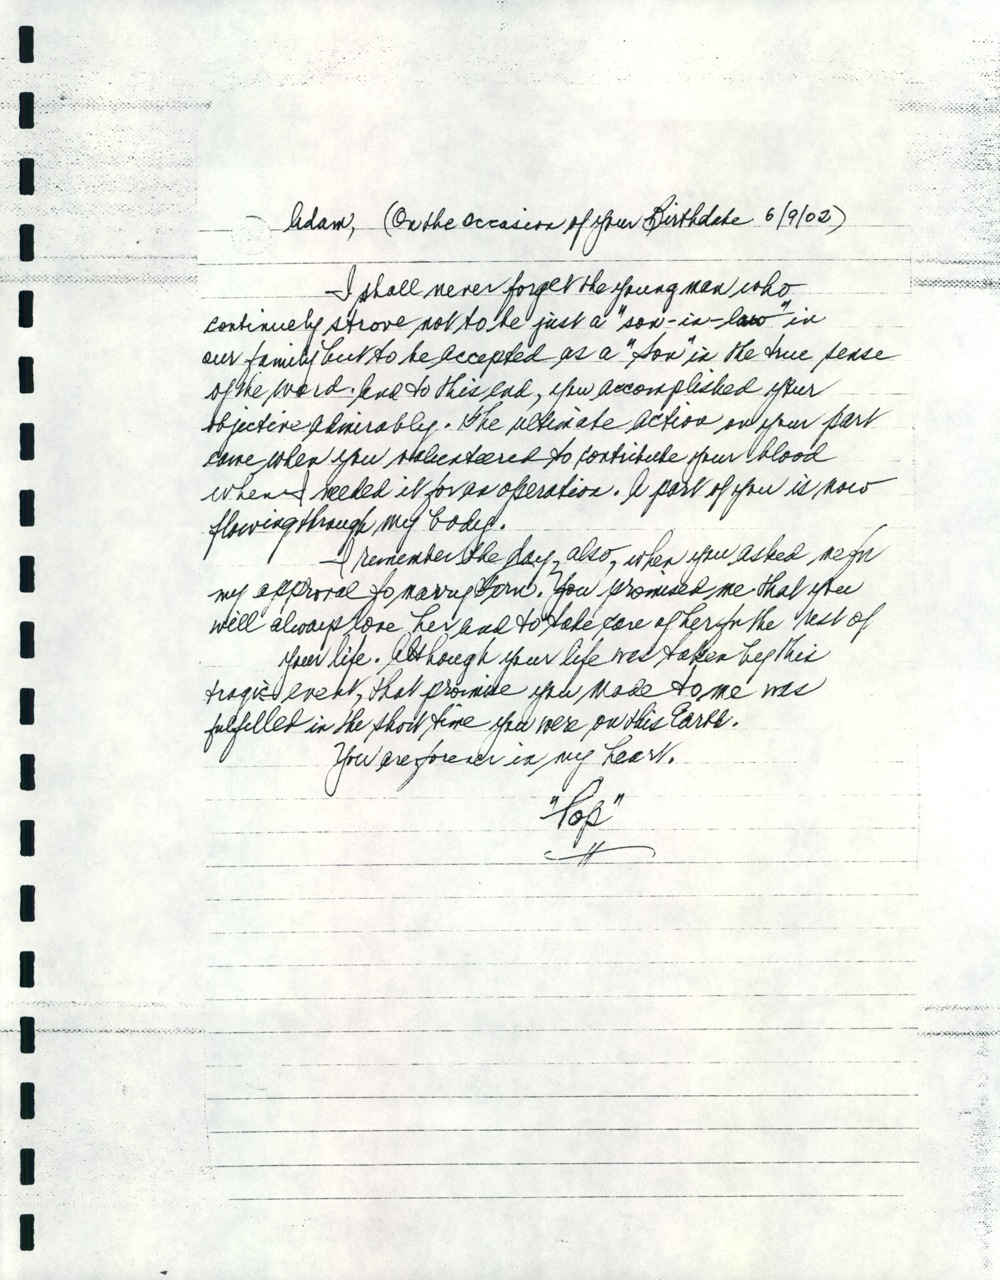 Adam, (On the occasion of your Birthdate 6/9/02)
I shall never forget the young man who
continuely strove not to be just a "son-in-law" in
our family but to be accepted as a "Son" in the true sense
of the word. And to this end, you accomplished your
objective admirably. The ultimate action on your part
came when you volunteered to contribute your blood
when I needed it for an operation. A part of you is now
flowing through my body.
I remember the day, also, when you asked me for
my approval to marry. You promised me that you
will always love her and to take care of her for the rest of
your life. Although your life was taken by this
tragic event, that promise you made to me was
fulfilled in the short time you were on this Earth.
You are forever in my heart.
"Pop"